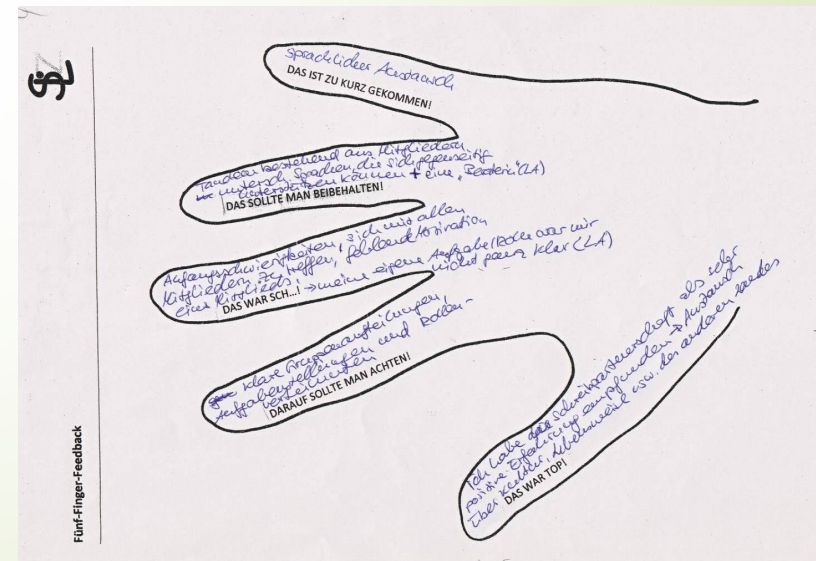 SLZ
Fünf-Finger-Feedback
sprachlicher Austausch
DAS IST ZU KURZ GEKOMMEN!
Tandem bestehend aus Mitgliedern
untersch. Sprachen, die sich gegenseitig
unterstützen können + eine „Beraterin" (LA)
DAS SOLLTE MAN BEIBEHALTEN!
Anfangsschwierigkeiten, sich mit allen
Mitgliedern zu treffen, fehlende Motivation
eines Mitglieds! → meine eigene Aufgabe/Rolle war mir
nicht ganz klar (LA)
DAS WAR SCH...!
klare Gruppenaufteilungen,
Aufgabenstellungen und Rollen-
verteilungen
DARAUF SOLLTE MAN ACHTEN!
Ich habe die Schreibpartnerschaft als sehr
positive Erfahrung empfunden → Austausch
über Kultur, Lebensweise usw. des anderen Landes
DAS WAR TOP!